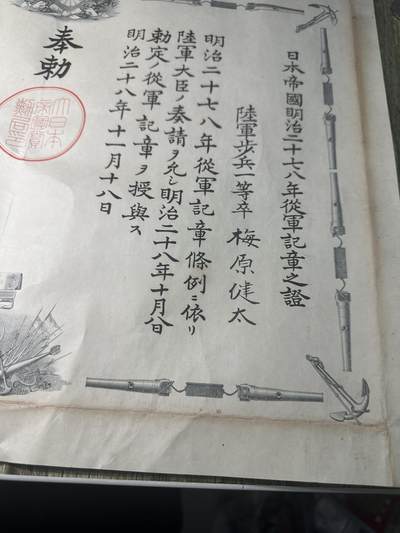 日本帝國明治二十七八年從軍記章之證
陸軍步兵一等卒 梅原健太
明治二十七八年從軍記章條例ニ依リ
陸軍大臣ノ奏請ヲ允シ明治二十八年十月八日
勅定ノ從軍記章ヲ授與ス
明治二十八年十一月十八日
奉勅
大日本